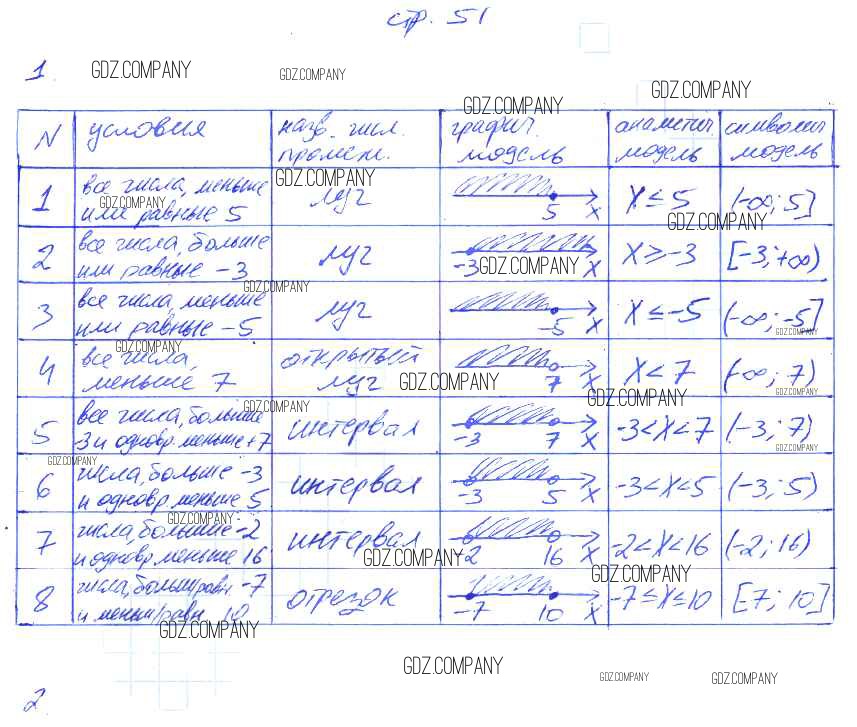 стр. 51
1 GDZ.COMPANY GDZ.COMPANY
GDZ.COMPANY GDZ.COMPANY
N условия назв. числ. промеж. графич. модель аналитич модель символич модель
1 все числа, меньше или равные 5 луч 5 x x ≤ 5 (-∞; 5]
GDZ.COMPANY GDZ.COMPANY GDZ.COMPANY
2 все числа, больше или равные -3 луч -3 x x ≥ -3 [-3; +∞)
GDZ.COMPANY GDZ.COMPANY
3 все числа, меньше или равные -5 луч -5 x x ≤ -5 (-∞; -5]
GDZ.COMPANY GDZ.COMPANY
4 все числа, меньше 7 открытый луч 7 x x < 7 (-∞; 7)
GDZ.COMPANY GDZ.COMPANY GDZ.COMPANY GDZ.COMPANY
5 все числа, больше -3 и одновр. меньше +7 интервал -3 7 x -3 < x < 7 (-3; 7)
GDZ.COMPANY GDZ.COMPANY
6 числа, больше -3 и одновр. меньше 5 интервал -3 5 x -3 < x < 5 (-3; 5)
GDZ.COMPANY
7 числа, больше -2 и одновр. меньше 16 интервал -2 16 x -2 < x < 16 (-2; 16)
GDZ.COMPANY GDZ.COMPANY
8 числа, больш/равн -7 и меньш/равн 10 отрезок -7 10 x -7 ≤ x ≤ 10 [-7; 10]
GDZ.COMPANY
GDZ.COMPANY GDZ.COMPANY GDZ.COMPANY
2